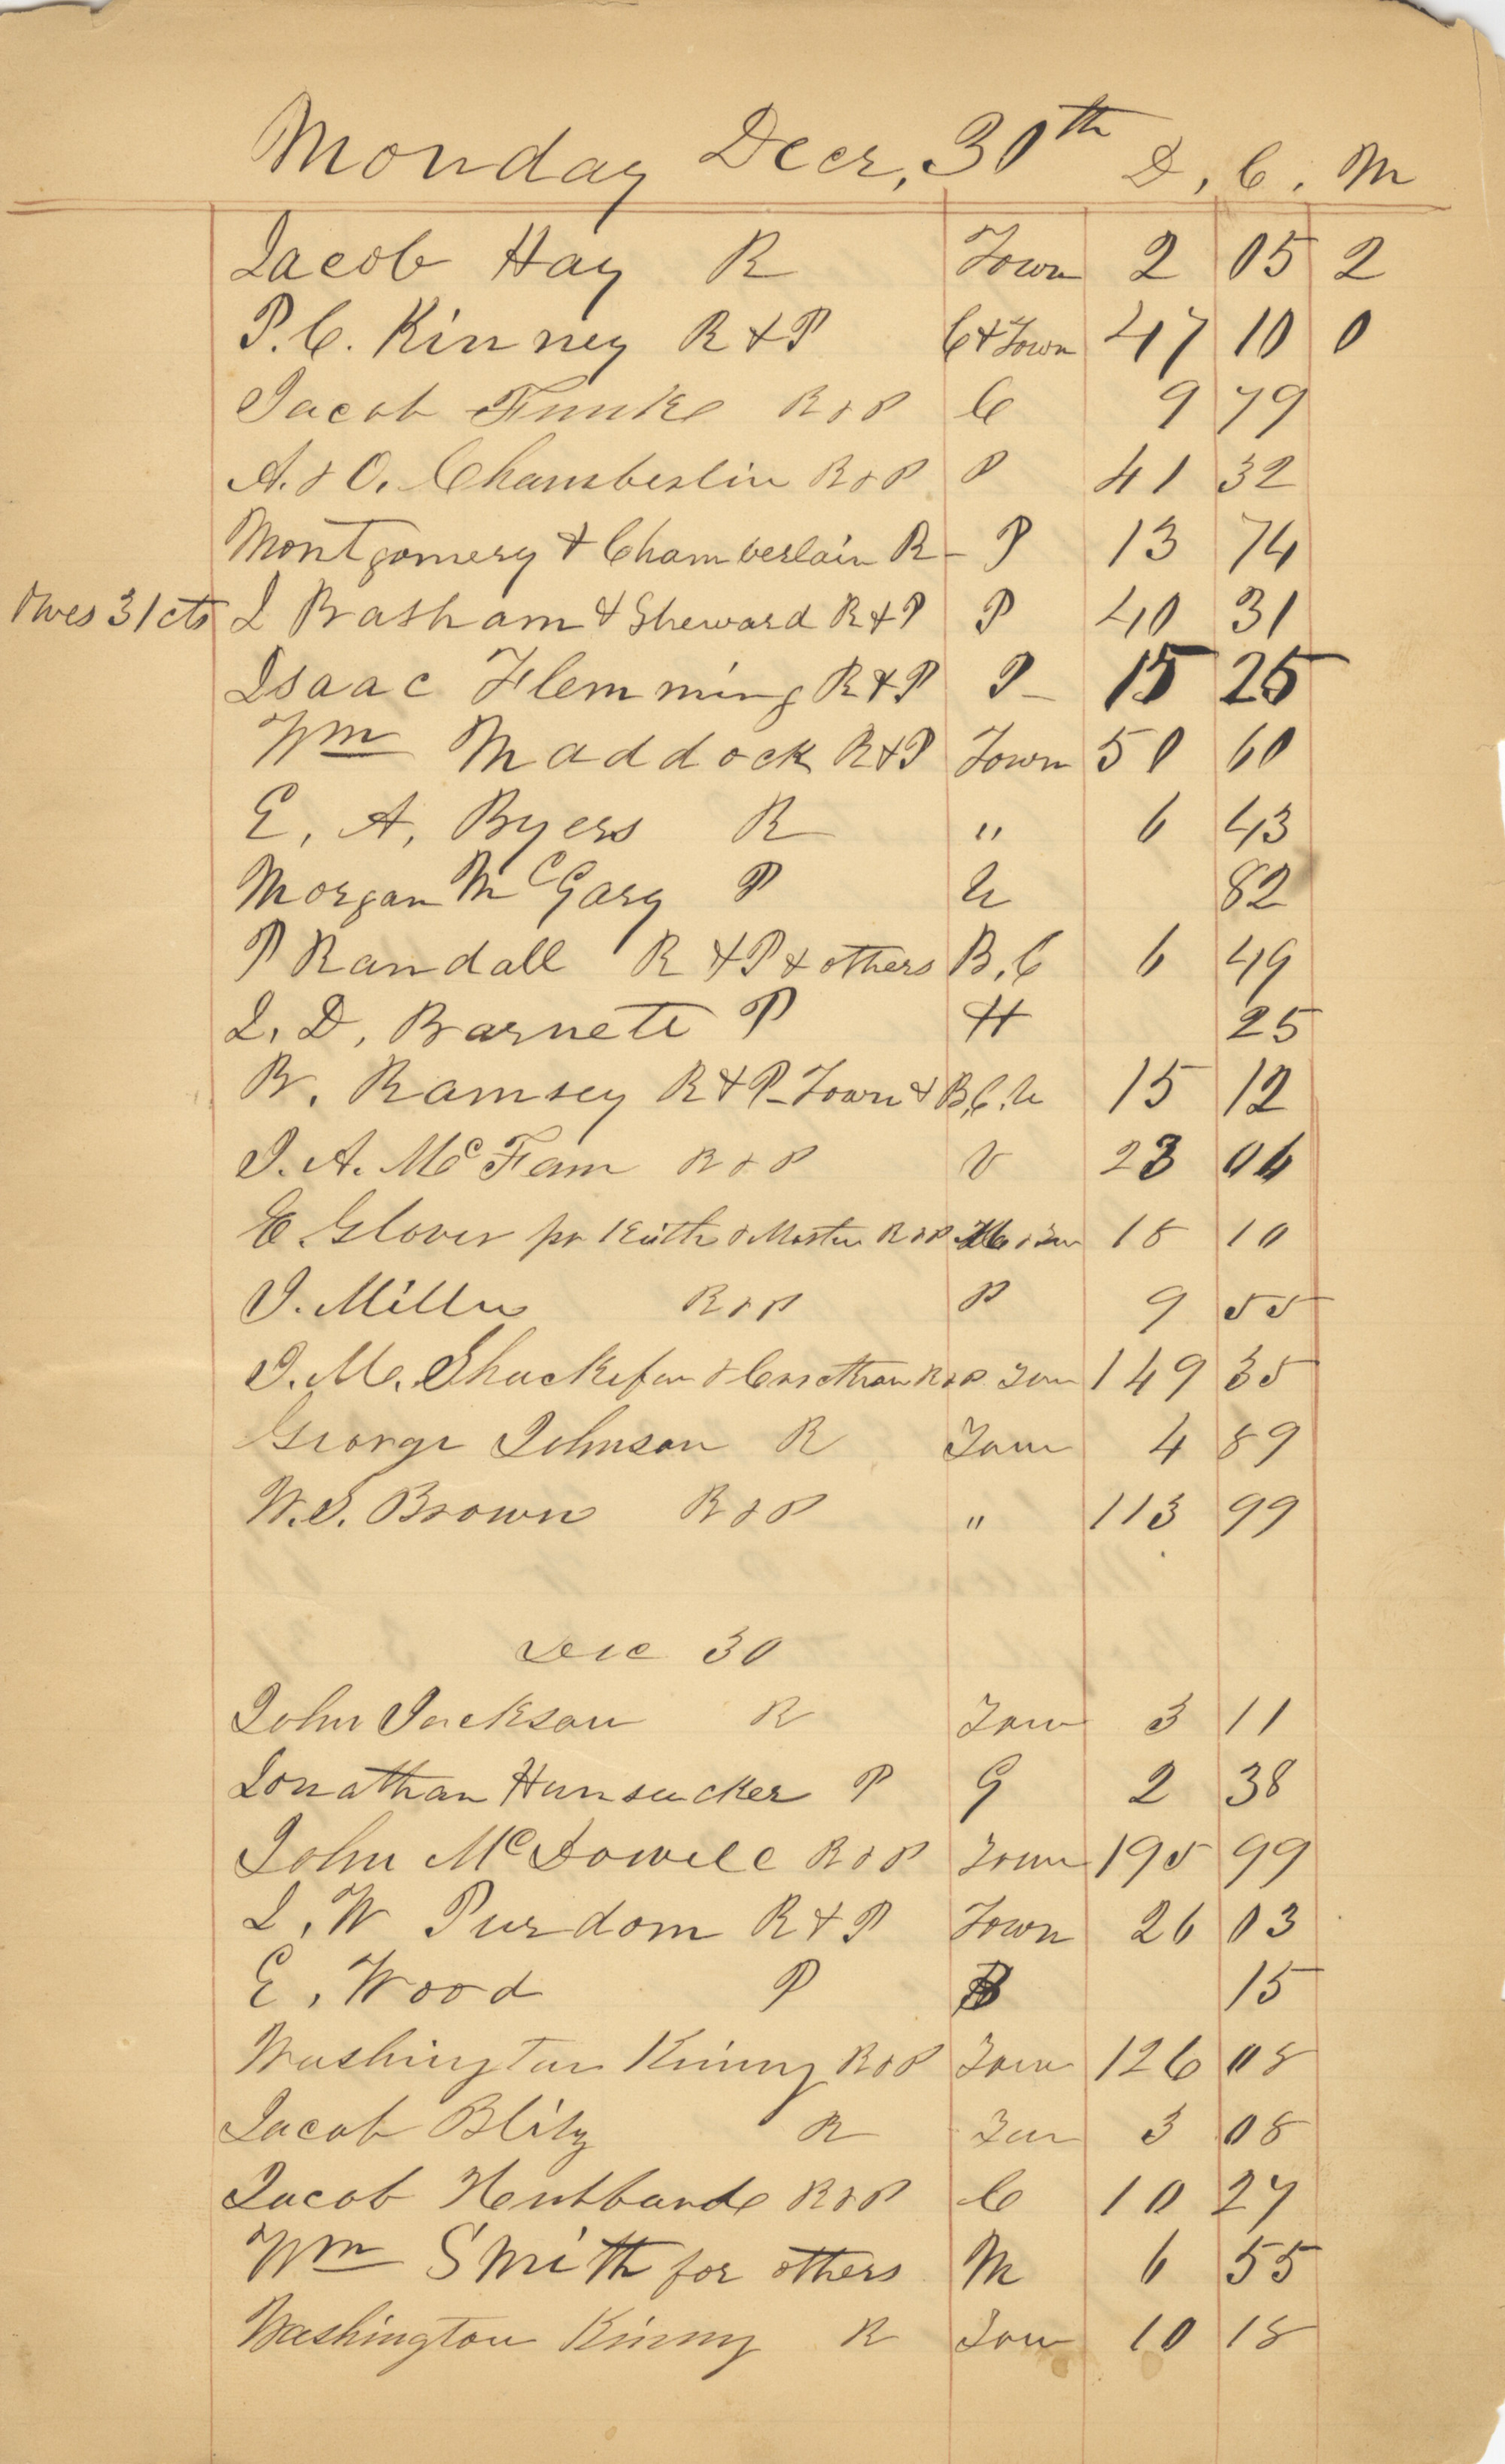 Monday Decr, 30th D, C, M
Jacob Hay R Town 2 05 2
P. C. Kinney R & P C & Town 47 10 0
Jacob Funke R & P C 9 79
A. & O. Chamberlin R & P P 41 32
Montgomery & Chamberlain R - P 13 74
Owes 31 cts J Basham & Sheward R & P P 40 31
Isaac Flemming R & P P - 15 25
Wm Maddock R & P Town 50 60
E, A, Byers R " 6 43
Morgan McGary P U 82
P Randall R & P & others B, C 6 49
J, D, Barnett P H 25
B. Ramsey R & P - Town & B, C, U 15 12
J. A. McFam R & P V 23 04
E. Glover pr & R & P 18 10
J. Miller R & P P 9 55
J. M. & R & P Town 149 35
George Johnson R Town 4 89
W. S. Brown R & P " 113 99
Dec 30
John Jackson R Town 3 11
Jonathan Hunsucker P G 2 38
John McDowell R & P Town 195 99
J, W Purdom R & P Town 26 03
E, Wood P B 15
Washington Kinny R & P Town 126 08
Jacob Blity R Town 3 08
Jacob R & P C 10 27
Wm Smith for others M 6 55
Washington Kinny R Town 10 18